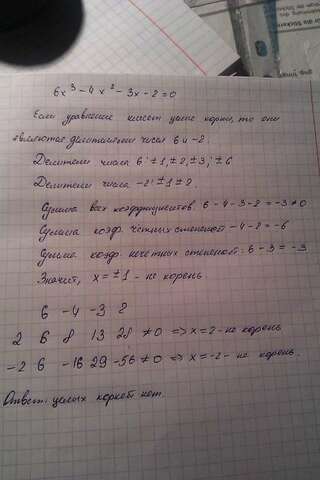 6x³ - 4x² - 3x - 2 = 0
Если уравнение имеет целые корни, то они
являются делителями числа 6 и -2.
Делители числа 6: ±1, ±2, ±3, ±6
Делители числа -2: ±1 ±2.
Сумма всех коэффициентов: 6 - 4 - 3 - 2 = -3 ≠ 0
Сумма коэф. четных степеней: -4 - 2 = -6
Сумма коэф. нечетных степеней: 6 - 3 = -3
Значит, x = ±1 - не корень.
6 -4 -3 2
2 6 8 13 28 ≠ 0 => x = 2 - не корень
-2 6 -16 29 -56 ≠ 0 => x = -2 - не корень.
Ответ: целых корней нет.